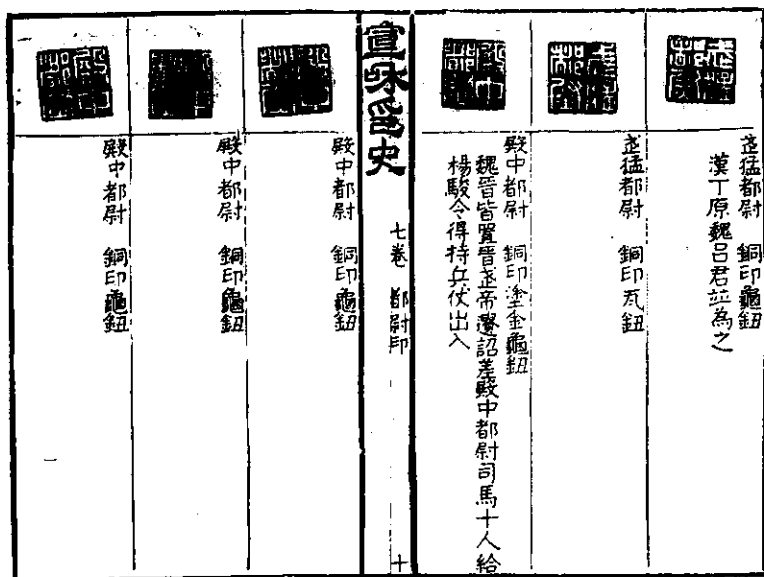 武猛都尉　銅印龜鈕
漢丁原魏呂君竝為之
武猛都尉　銅印瓦鈕
殿中都尉　銅印塗金龜鈕
魏晉皆置晉武帝遺詔差殿中都尉司馬十人給
楊駿令得持兵仗出入
宣和印史
七卷　都尉印
十
殿中都尉　銅印龜鈕
殿中都尉　銅印龜鈕
殿中都尉　銅印龜鈕